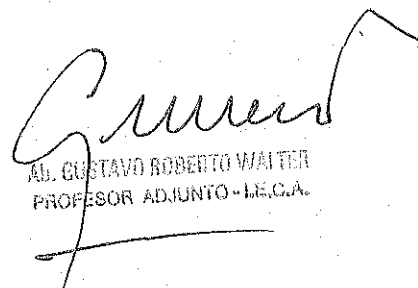 Ab. GUSTAVO ROBERTO WALTER
PROFESOR ADJUNTO - I.E.C.A.